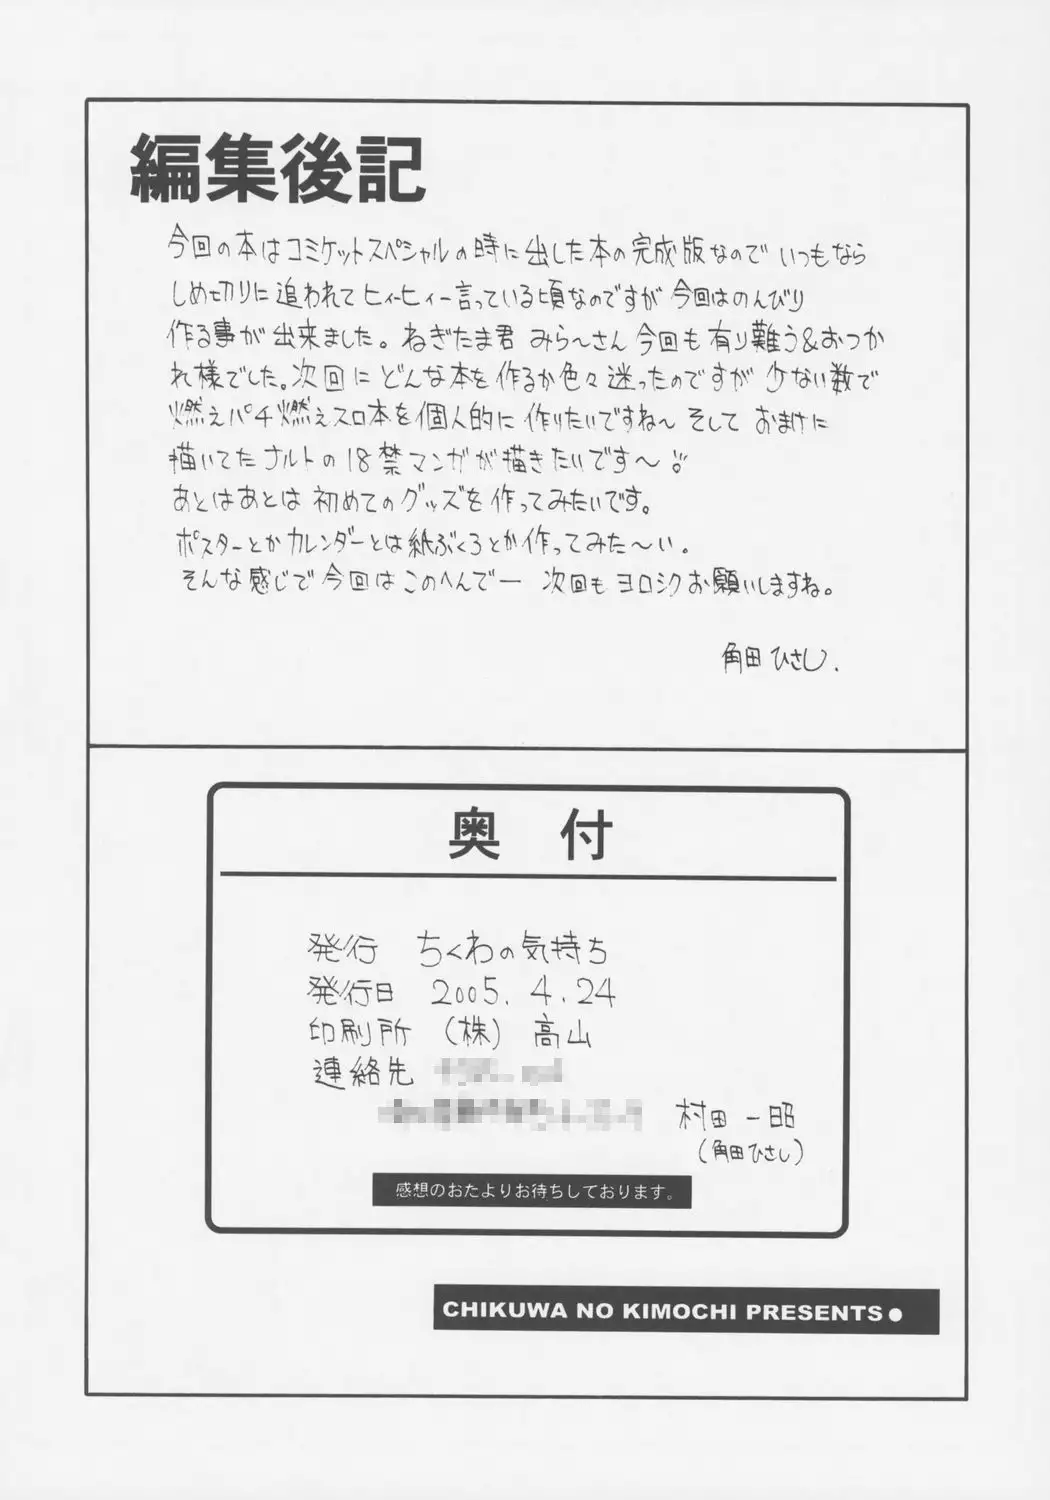 編集後記
今回の本はコミケットスペシャルの時に出した本の完成版なので いつもなら
しめ切りに追われてヒィーヒィー言っている頃なのですが 今回はのんびり
作る事が出来ました。ねぎたま君 みら～さん 今回も有り難う&おつか
れ様でした。次回に どんな本を作るか色々迷ったのですが 少ない数で
燃えパチ燃えスロ本を個人的に作りたいですね～ そして おまけに
描いてたナルトの18禁マンガが描きたいです～
あとはあとは初めてのグッズを作ってみたいです。
ポスターとかカレンダーとは紙ぶくろとか作ってみた～い。
そんな感じで今回はこのへんでー 次回もヨロシクお願いしますね。
角田ひさし.
奥 付
発行 ちくわの気持ち
発行日 2005.4.24
印刷所 (株) 高山
連絡先
村田 一昭
(角田ひさし)
感想のおたよりお待ちしております。
CHIKUWA NO KIMOCHI PRESENTS●